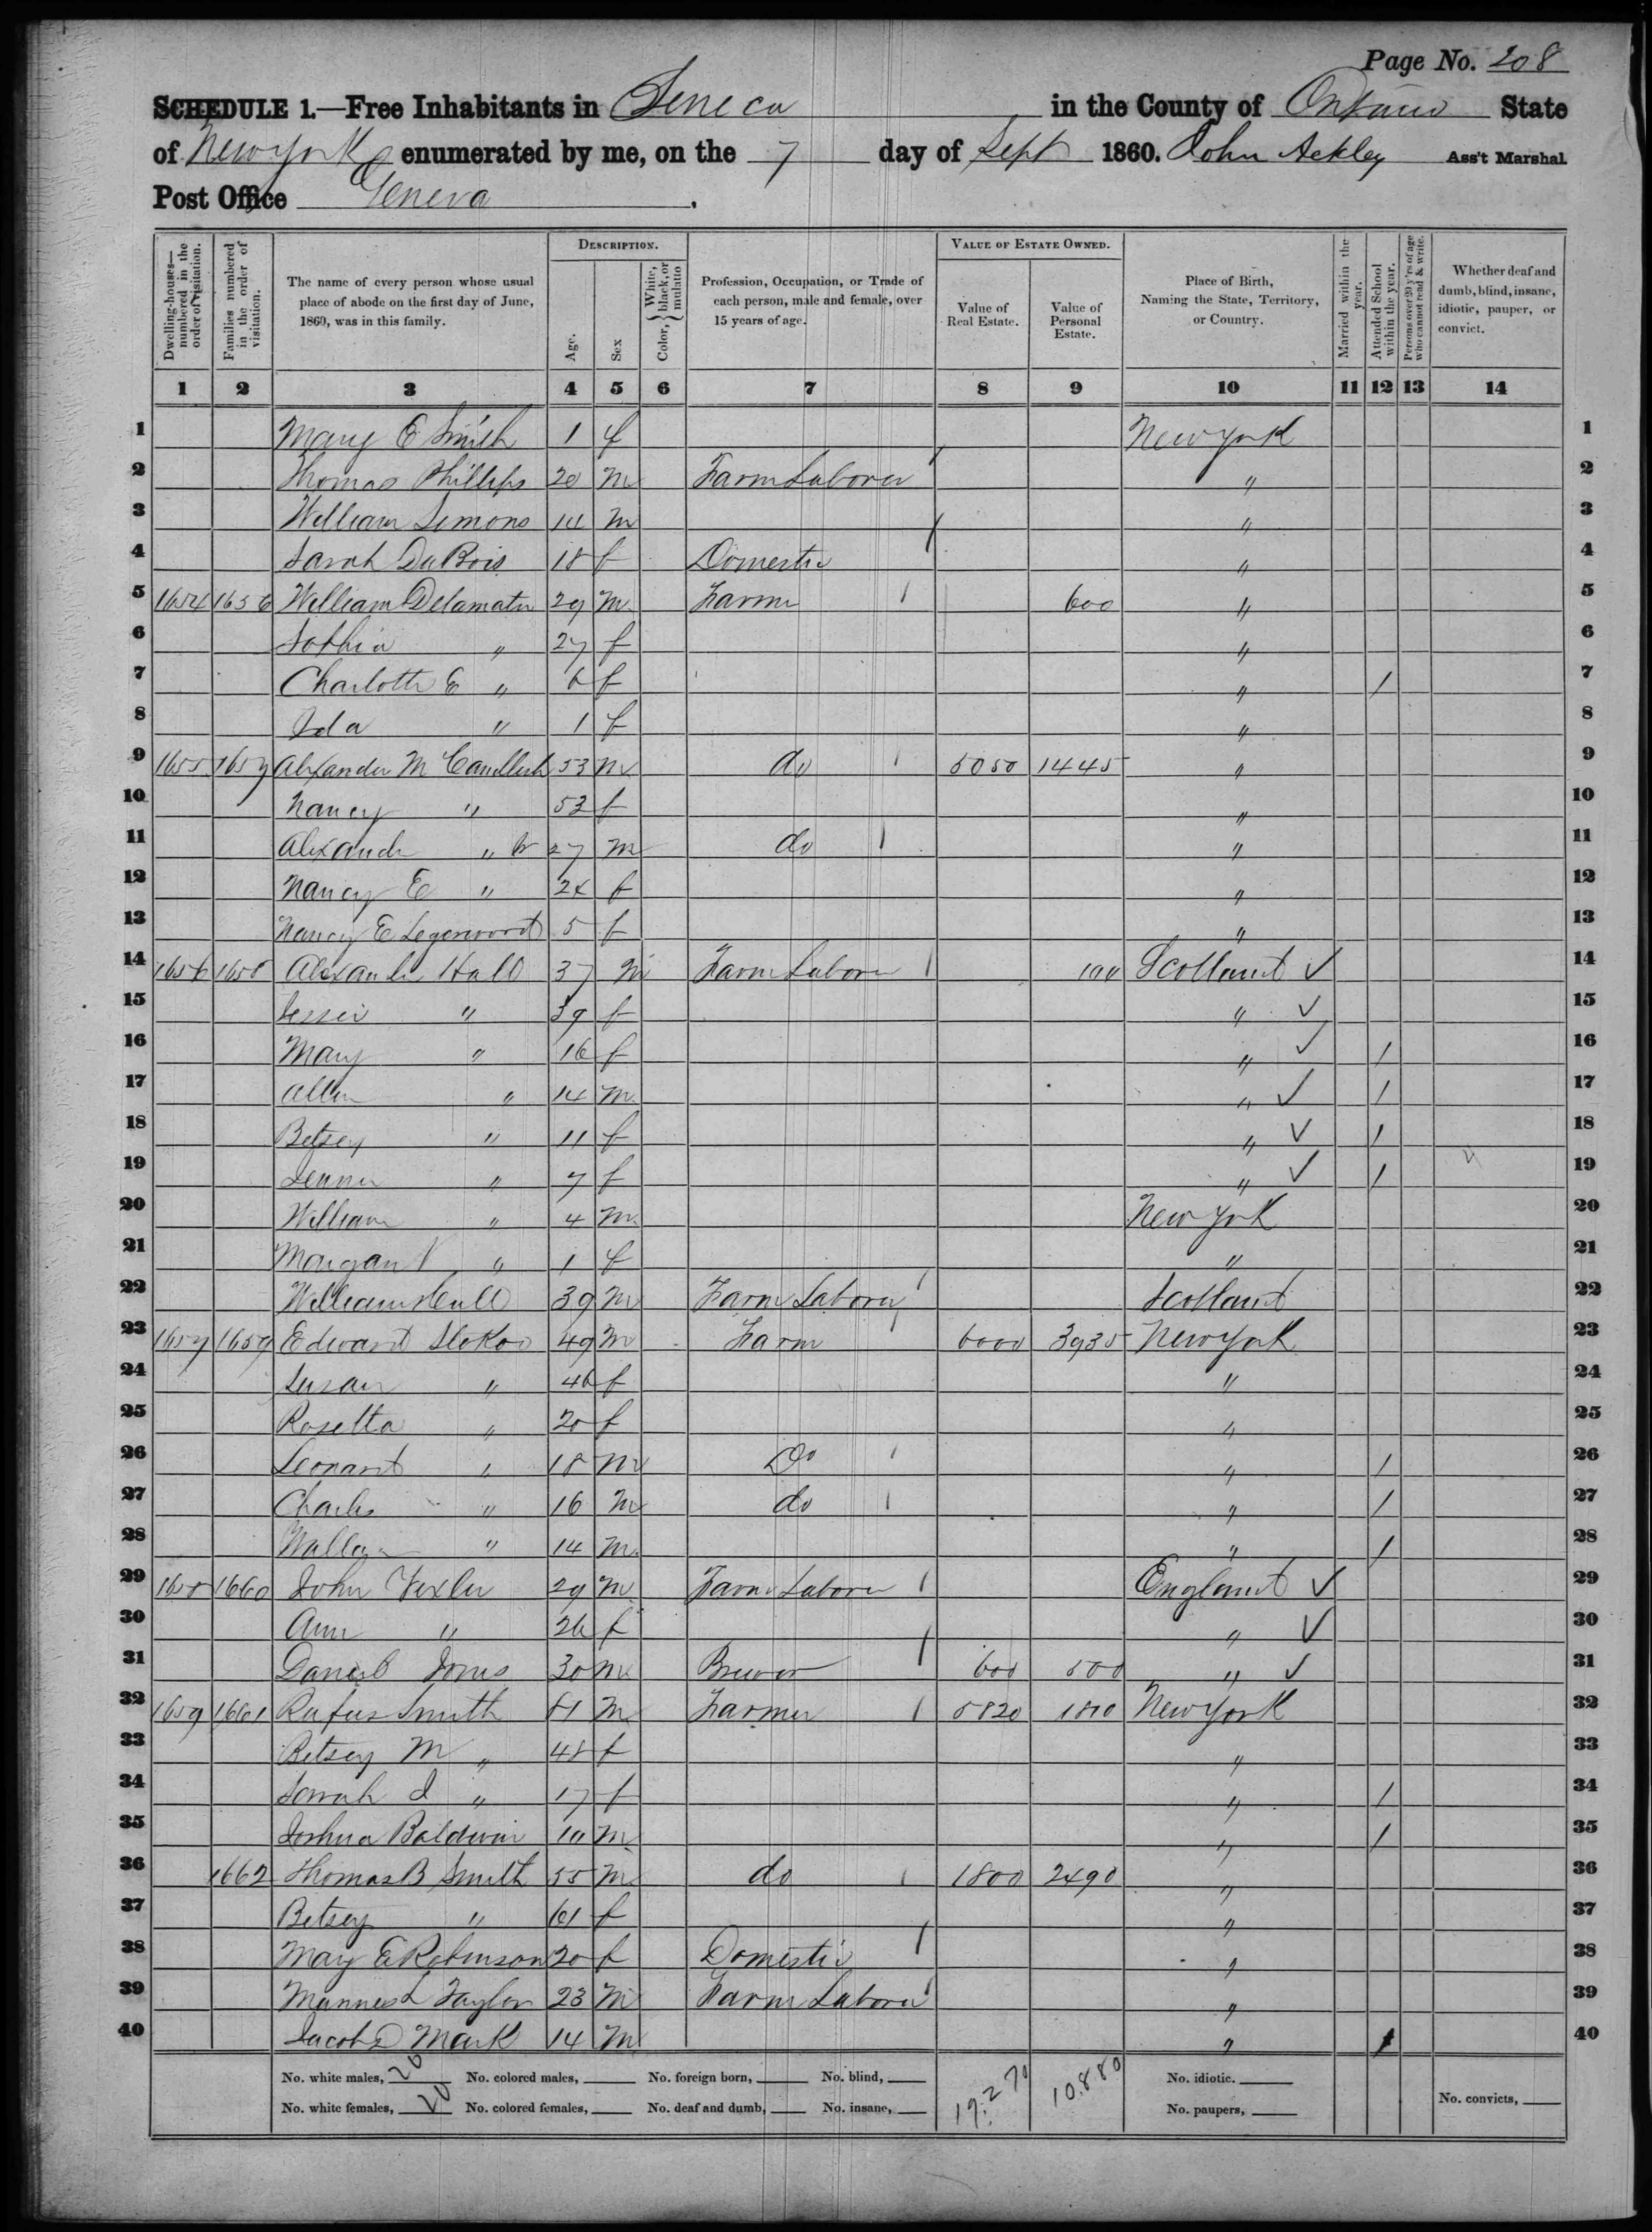 Page No. 208
SCHEDULE 1.—Free Inhabitants in Seneca in the County of Ontario State
of New York enumerated by me, on the 7 day of Sept 1860. John Ackley Ass't Marshal
Post Office Geneva .
DESCRIPTION. VALUE OF ESTATE OWNED.
Dwelling-houses—numbered in the order of visitation. Families numbered in the order of visitation. The name of every person whose usual place of abode on the first day of June, 1860, was in this family. Age. Sex Color, {White, black, or mulatto Profession, Occupation, or Trade of each person, male and female, over 15 years of age. Value of Real Estate. Value of Personal Estate. Place of Birth, Naming the State, Territory, or Country. Married within the year. Attended School within the year. Persons over 20 y'rs of age who cannot read & write. Whether deaf and dumb, blind, insane, idiotic, pauper, or convict.
1 2 3 4 5 6 7 8 9 10 11 12 13 14
1 Mary E Smith 1 f New York 1
2 Thomas Phillips 20 m Farm Laborer " 2
3 William Simons 14 m " 3
4 Sarah DuBois 18 f Domestic " 4
5 1654 1656 William Delamater 29 m Farmer 600 " 5
6 Sophia " 27 f " 6
7 Charlotte E " 6 f " / 7
8 Ida " 1 f " 8
9 1655 1657 Alexander M Candlish 53 m do 5050 1445 " 9
10 Nancy " 53 f " 10
11 Alexander " Jr 27 m do " 11
12 Nancy E " 24 f " 12
13 Nancy E Legerwood 5 f " 13
14 1656 1658 Alexander Hall 37 m Farm Laborer 100 Scotland ✓ 14
15 Jessie " 39 f " ✓ 15
16 Mary " 16 f " ✓ / 16
17 Allen " 14 m " ✓ / 17
18 Betsey " 11 f " ✓ / 18
19 " 7 f " ✓ / 19
20 William " 4 m New York 20
21 Margaret " 1 f " 21
22 William Hall 39 m Farm Laborer Scotland 22
23 1657 1659 Edward 49 m Farm 6000 3935 New York 23
24 Susan " 46 f " 24
25 Rosetta " 20 f " 25
26 Leonard " 18 m Do " / 26
27 Charles " 16 m do " / 27
28 " 14 m " / 28
29 1658 1660 John 29 m Farm Laborer England ✓ 29
30 Ann " 26 f " ✓ 30
31 Daniel Jones 30 m Brewer 600 500 " ✓ 31
32 1659 1661 Rufus Smith 51 m Farmer 5820 1810 New York 32
33 Betsey M " 48 f " 33
34 Sarah J " 17 f " / 34
35 Joshua Baldwin 10 m " / 35
36 1662 Thomas B Smith 55 m do 1800 2490 " 36
37 Betsey " 61 f " 37
38 Mary E Robinson 20 f Domestic " 38
39 Taylor 23 m Farm Laborer " 39
40 Jacob D Mark 14 m " / 40
No. white males, 20 No. colored males, No. foreign born, No. blind, 19.270 10.880 No. idiotic.
No. white females, 20 No. colored females, No. deaf and dumb, No. insane, No. paupers, No. convicts,